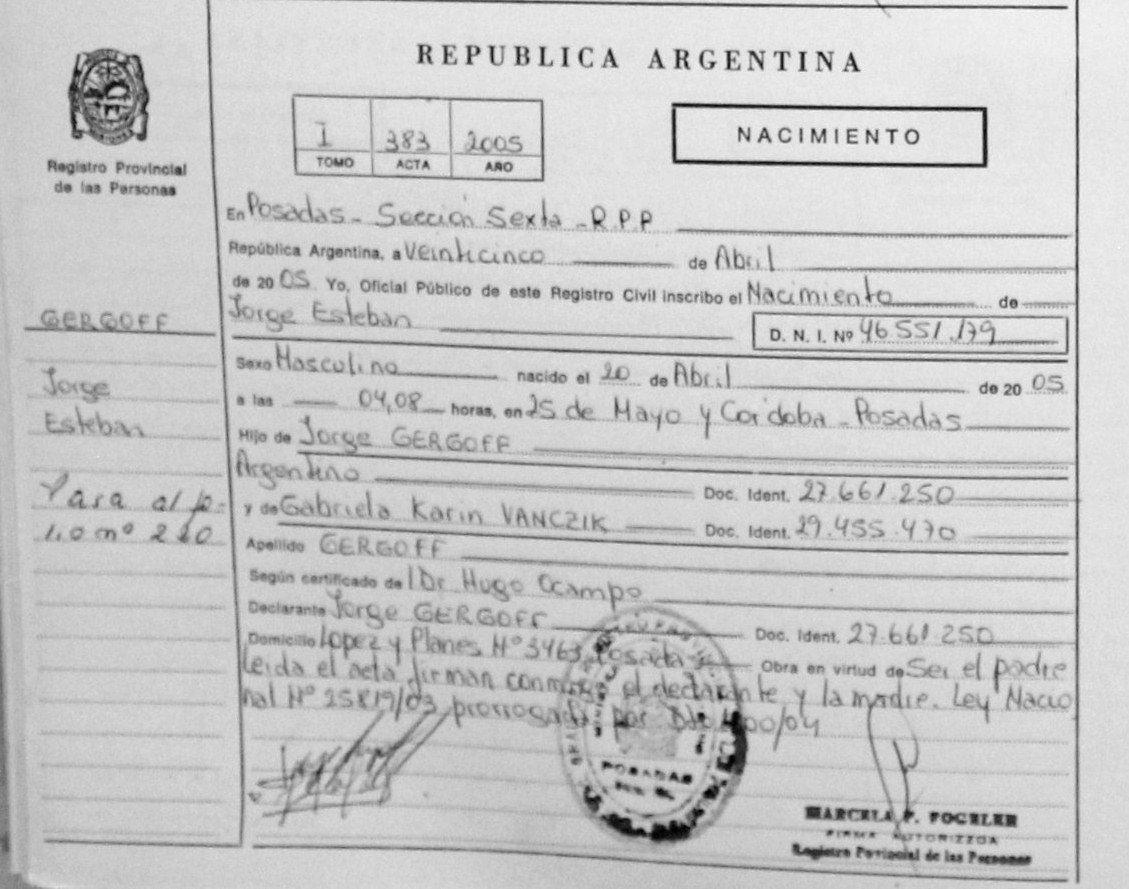 REPUBLICA ARGENTINA
I 383 2005
TOMO ACTA AÑO
NACIMIENTO
Registro Provincial
de las Personas
En Posadas - Sección Sexta - R.P.P
República Argentina, a Veinticinco de Abril
de 2005 Yo, Oficial Público de este Registro Civil inscribo el Nacimiento de
Jorge Esteban D. N. I. Nº 46.551.179
GERGOFF
Jorge
Esteban
Pasa al fo-
lio nº 210
Sexo Masculino nacido el 20 de Abril de 2005
a las 04,08 horas, en 25 de Mayo y Cordoba - Posadas
Hijo de Jorge GERGOFF
Argentino Doc. Ident. 27.661.250
y de Gabriela Karin VANCZIK Doc. Ident. 29.455.470
Apellido GERGOFF
Según certificado de Dr Hugo Ocampo
Declarante Jorge GERGOFF Doc. Ident. 27.661.250
Domicilio Lopez y Planes Nº 3463 Posadas Obra en virtud de Ser el padre
leida el acta firman conmigo el declarante y la madre. Ley Nacio
nal Nº 25819/03 prorrogada por
POSADAS
MARCELA P. FOGELER
FIRMA AUTORIZZDA
Registro Povincial de las Personas